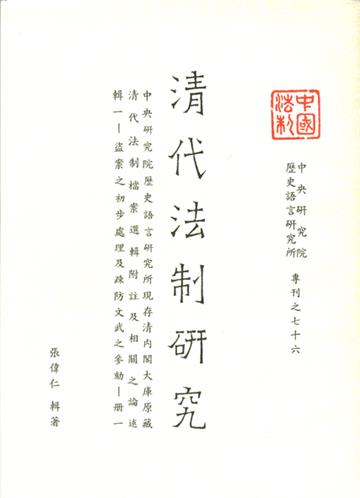 中國
法制
中央研究院
歷史語言研究所 專刊之七十六
清代法制研究
中央研究院歷史語言研究所現存清內閣大庫原藏
清代法制檔案選輯附註及相關之論述
輯一—盜案之初步處理及疎防文武之參劾—冊一
張偉仁 輯著